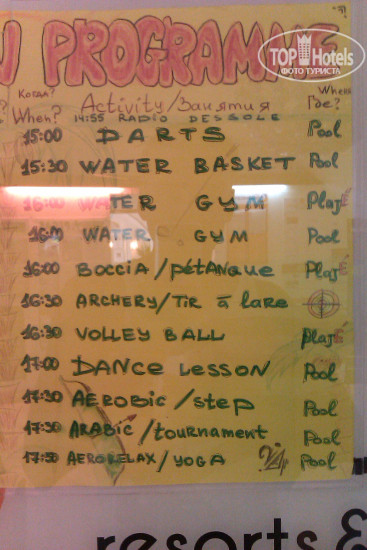 PROGRAMME
TOP Hotels
ФОТО ТУРИСТА
Когда? Where
When? Activity/Занятия Где?
14:55 RADIO DESSOLE
15:00 DARTS Pool
15:30 WATER BASKET Pool
16:00 WATER GYM Plaje
WATER GYM Pool
16:00 BOCCIA/pétanque Plaje
16:30 ARCHERY/Tir à larc
16:30 VOLLEY BALL plaje
17:00 DANCE LESSON Pool
17:30 AEROBIC/step Pool
17:30 ARABIC/tournament Pool
17:50 AERORELAX/YOGA Pool
resorts &